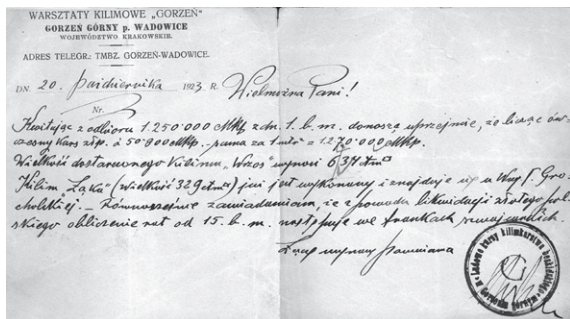 WARSZTATY KILIMOWE „GORZEŃ"
GORZEŃ GÓRNY p. WADOWICE
WOJEWÓDZTWO KRAKOWSKIE.
ADRES TELEGR.: TMBZ. GORZEŃ-WADOWICE.
DN. 20. Października 1923 R.
Wielmożna Pani!
Nr.
Kwitając z odbioru 1.250.000 Mkp. z dn. 1. b. m. donoszę uprzejmie, że licząc ów-
czesny kurs złp. à 50.800 Mkp. – suma za 1 mtr = 1.270.000 Mkp.
Wielkość dostarczonego Kilimu „Wrzos" wynosi
Kilim „Łąka" (wielkość 329 dcm²) już jest wykonany i znajduje się u Wnej P. Gro-
cholskiej. – Równocześnie zawiadamiam, że z powodu likwidacji złotego pol-
skiego obliczenie rat od 15. b. m. następuje we frankach szwajcarskich.
Łączę wyrazy